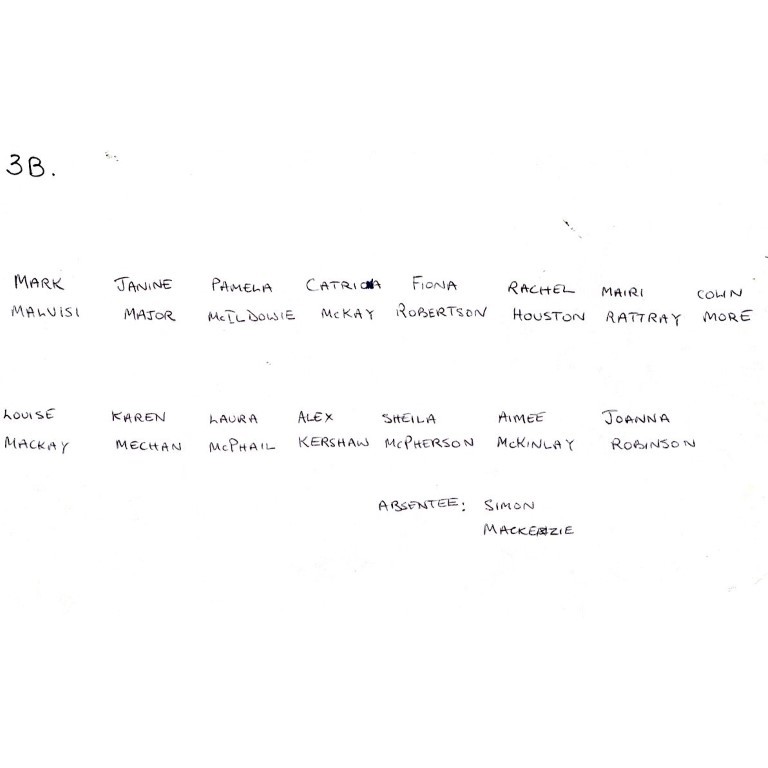 3B.
MARK JANINE PAMELA CATRIONA FIONA RACHEL MAIRI COLIN
MALVISI MAJOR McILDOWIE McKAY ROBERTSON HOUSTON RATTRAY MORE
LOUISE KAREN LAURA ALEX SHEILA AIMEE JOANNA
MACKAY MECHAN McPHAIL KERSHAW McPHERSON McKINLAY ROBINSON
ABSENTEE: SIMON
MACKENZIE